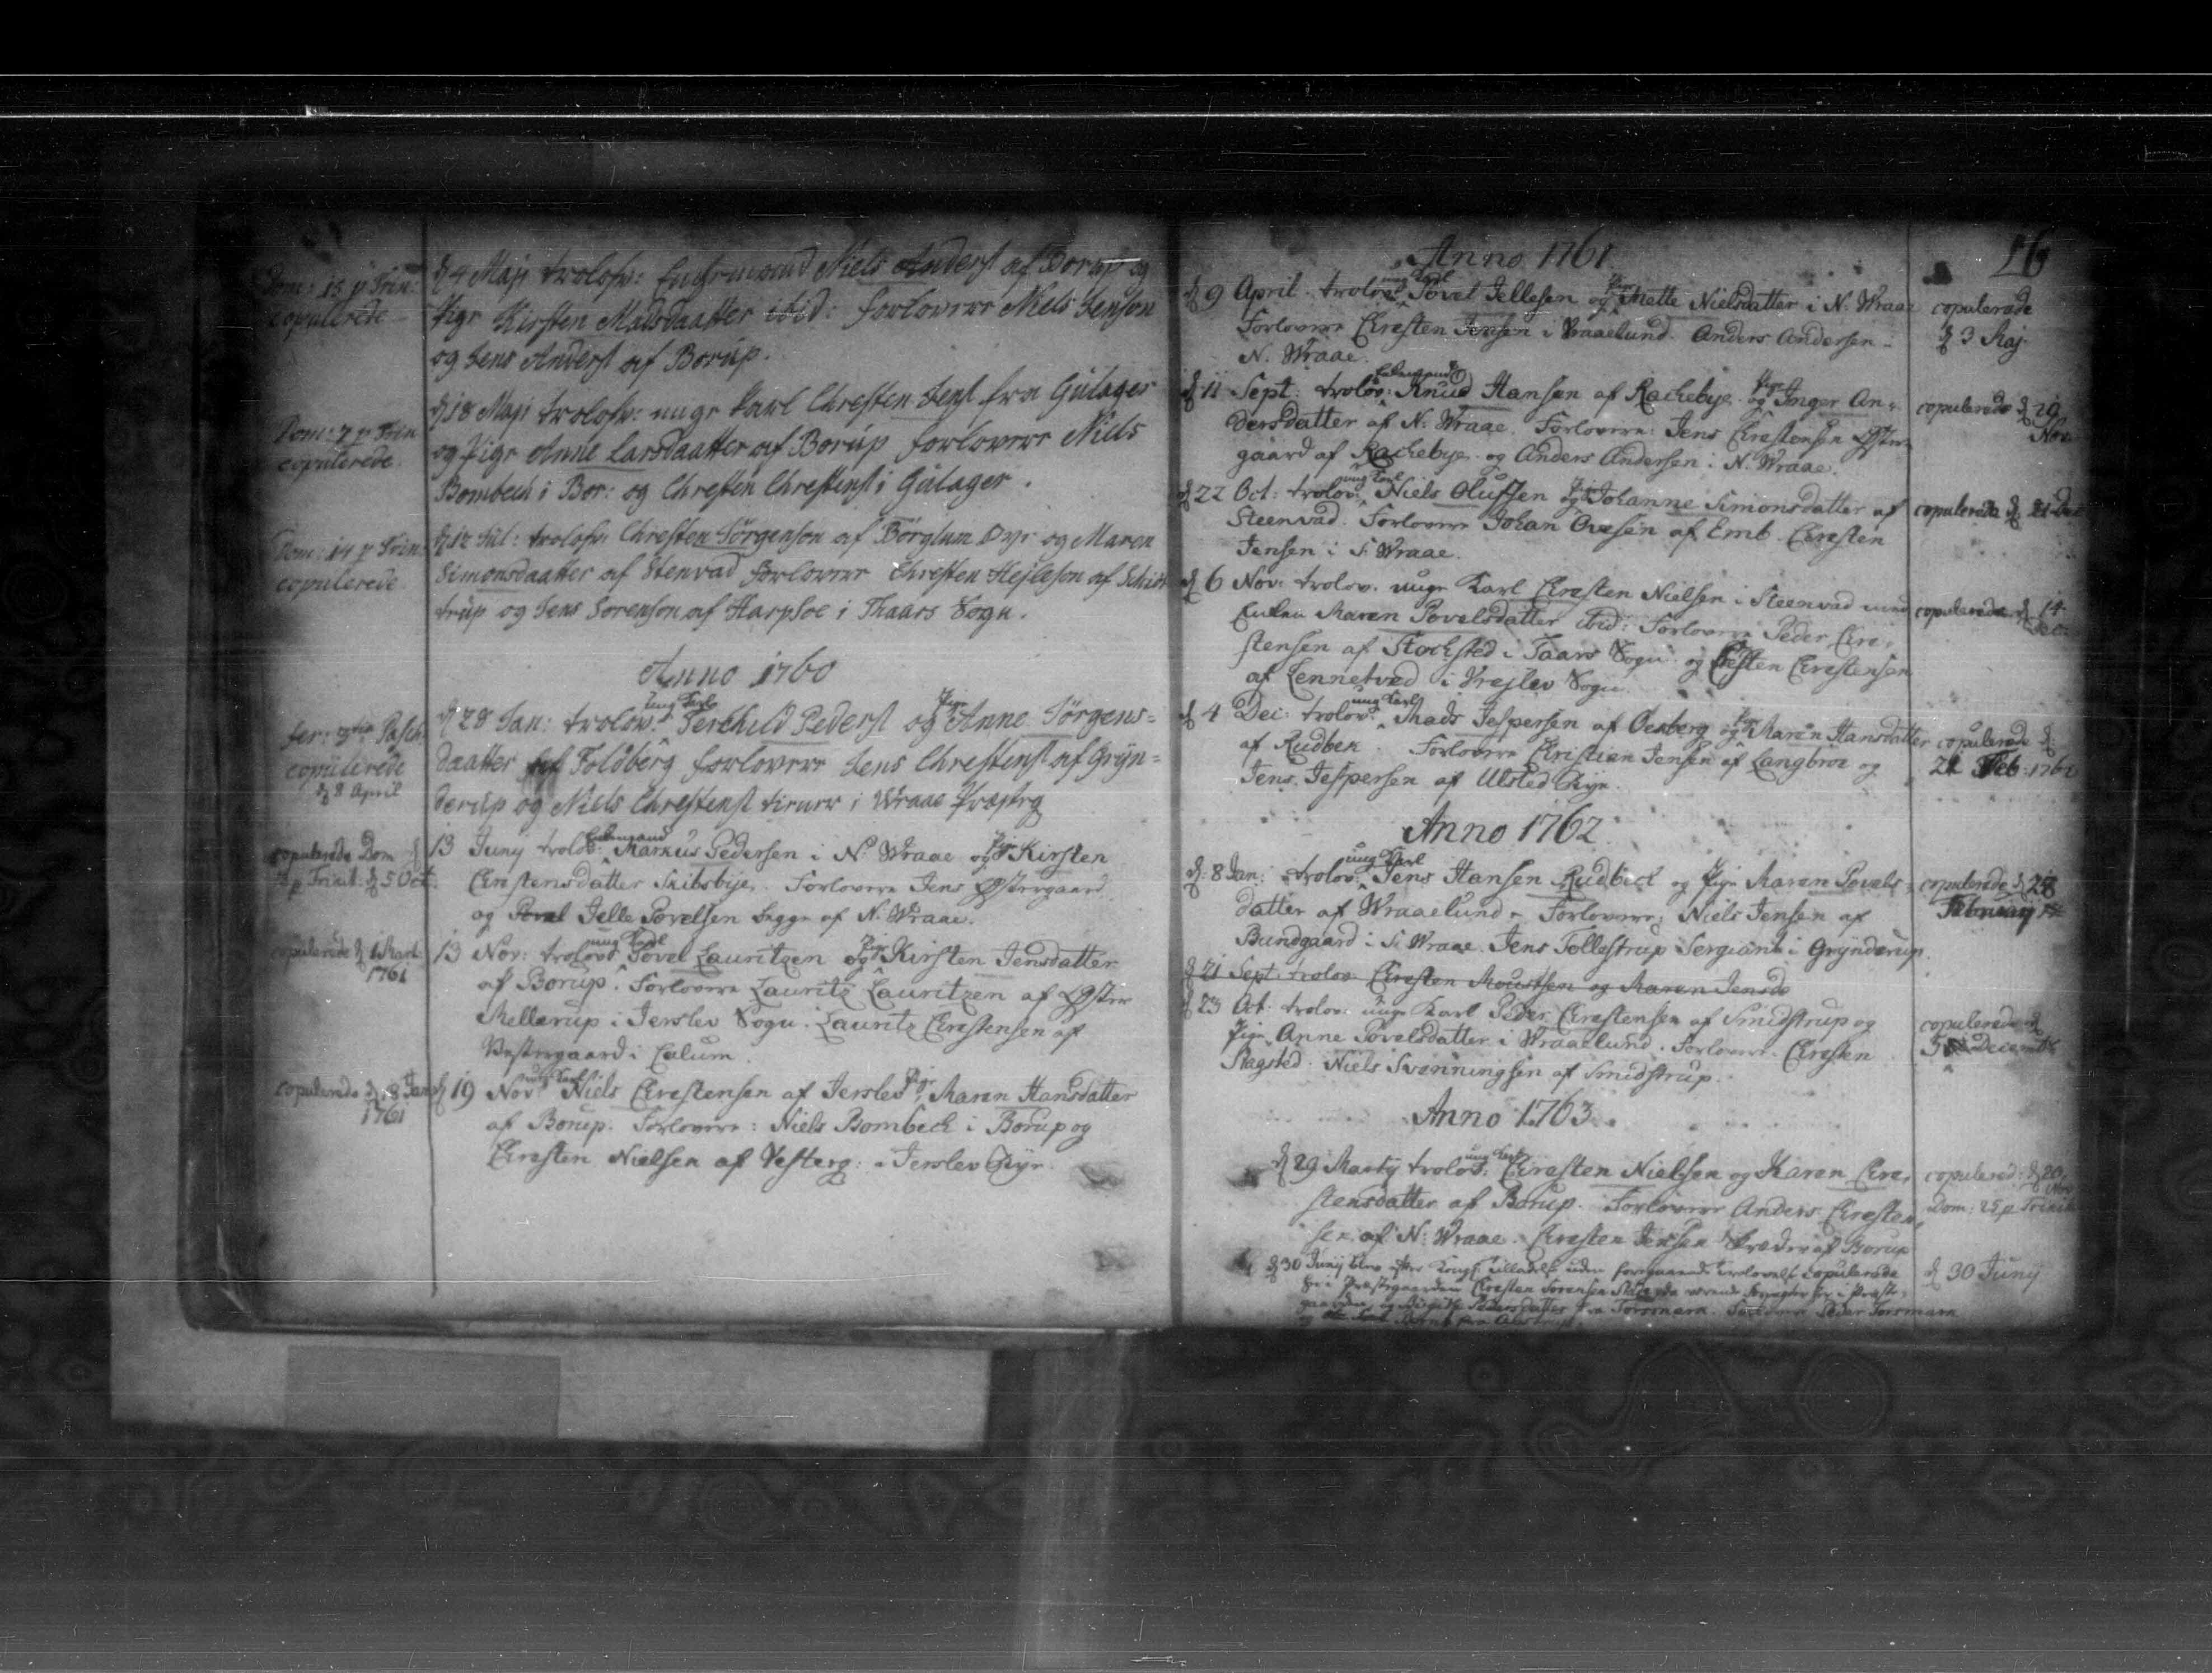 Dom: 15 p Trin:
copulerede
d 4 Maji trolofv: Enchemand Niels Anderst af Borup og
Pige Kirsten Madsdaatter ibid: forlovere Niels Jenson
og Jens Anderst af Borup.
Dom: 7 p Trin
copulerede
d 18 Maji trolofv: unge Karl Chresten Jenst fra Gulager
og Pige Anne Larsdaatter af Borup forlovere Niels
Bombech i Bor: og Chresten Chrestenst i Gulager.
Dom: 14 p Trin:
copulerede
d 12 Jul: trolofv: Chresten Jörgenson af Börglum Dyr: og Maren
Simonsdaatter af Stenvad forlovere Chresten Hejleson af
trup og Jens Sorenson af Harpsoe i Thaars Sogn.
Anno 1760
fer: Pasch:
copulerede
d 8 April
ung Karl Pige
d 28 Jan: trolov: Terchild Pederst og Anne Jörgens=
daatter af Foldberg forlovere Jens Chrestenst af Gryn=
derup og Niels Chrestenst tienere i Wraae Præstg
copulerede Dom
p Trinit: d 5 Oct:
Enkemand Pige
d 13 Juny trolov: Markus Pedersen i N. Wraae og Kirsten
Chrestensdatter Skibsbye. Forlovere Jens Østergaard
og Povel Jelle Povelsen begge af N. Wraae.
copulerede d 1 Mart:
1761
ung Karl Pige
13 Nov: trolov: Povel Lauritzen og Kirsten Jensdatter
af Borup. Forlovere Lauritz Lauritzen af Øster
Mellerup i Jerslev Sogn. Lauritz Chrestensen af
Vestergaard i
copulerede d 18 Jan:
1761
ung Karl Pige
d 19 Nov: Niels Chrestensen af Jerslev, Maren Hansdatter
af Borup. Forlovere: Niels Bombech i Borup og
Chresten Nielsen af Vesterg: i Jerslev Bye
26
Anno 1761.
ung Karl Pige
d 9 April. trolov: Povel Jellesen og Mette Nielsdatter i N. Wraae
Forlovere Chresten Jensen i Wraaelund. Anders Andersen i
N. Wraae.
copulerede
d 3 Maj
Enkemand Pige
d 11 Sept: trolov: Knud Hansen af Rachebye og Inger An=
dersdatter af N: Wraae. Forlovere: Jens Chrestensen Øster
gaard af Rachebye og Anders Andersen i N. Wraae.
copulerede d 29
Nov:
ung Karl Pige
d 22 Oct: trolov: Niels Olufsen og Johanne Simonsdatter af
Steenvad. Forlovere Johan Ovesen af Emb. Chresten
Jensen i S: Wraae.
copulerede d 21 Dec
d 6 Nov: trolov: unge Karl Chresten Nielsen i Steenvad med
Enken Maren Povelsdatter ibid: Forlovere Peder Chre=
stensen af Stocksted i Taars Sogn og Chresten Chrestensen
af Lennetved i Vrejlev Sogn.
copulerede d 14
ung Karl Pige
d 4 Dec: trolov: Mads Jespersen af Oesberg og Maren Hansdatter
af Rudbek. Forlovere Christian Jensen af Langbroe og
Jens Jespersen af Ulsted Bye.
copulerede d
21 Feb: 1762
Anno 1762
ung Karl
d: 8 Jan: trolov: Jens Hansen Rudbeck og Pige Maren Povels=
datter af Wraaelund. Forlovere: Niels Jensen af
Bundgaard i S: Wraae. Jens Tollestrup Sergiant i Grynderup.
copulerede d 28
Februarij
d 21 Sept: trolov: Chresten Moustsen og Maren Jensd
d 23 Oct: trolov: unge Karl Peder Chrestensen af Smidstrup og
Pige Anne Povelsdatter i Wraaelund. Forlovere. Chresten
Slagsted. Niels Svenningsen af Smidstrup.
copulerede d
5 Decemb:
Anno 1763.
ung Karl
d 29 Martij trolov: Chresten Nielsen og Karen Chre=
stensdatter af Borup. Forlovere Anders Chresten=
sen af N: Wraae. Chresten Jensen Skræder af Borup
copulered: d 20
Nov
Dom: 25 p Trinit:
d 30 Junij blev efter Kongl: tilladelse uden foregaaende trolovelse copulerede
her i Præstegaarden Chresten Sorensen
Pedersdatter fra Torsmark. Forlovere Peder Torsmark
d 30 Junij